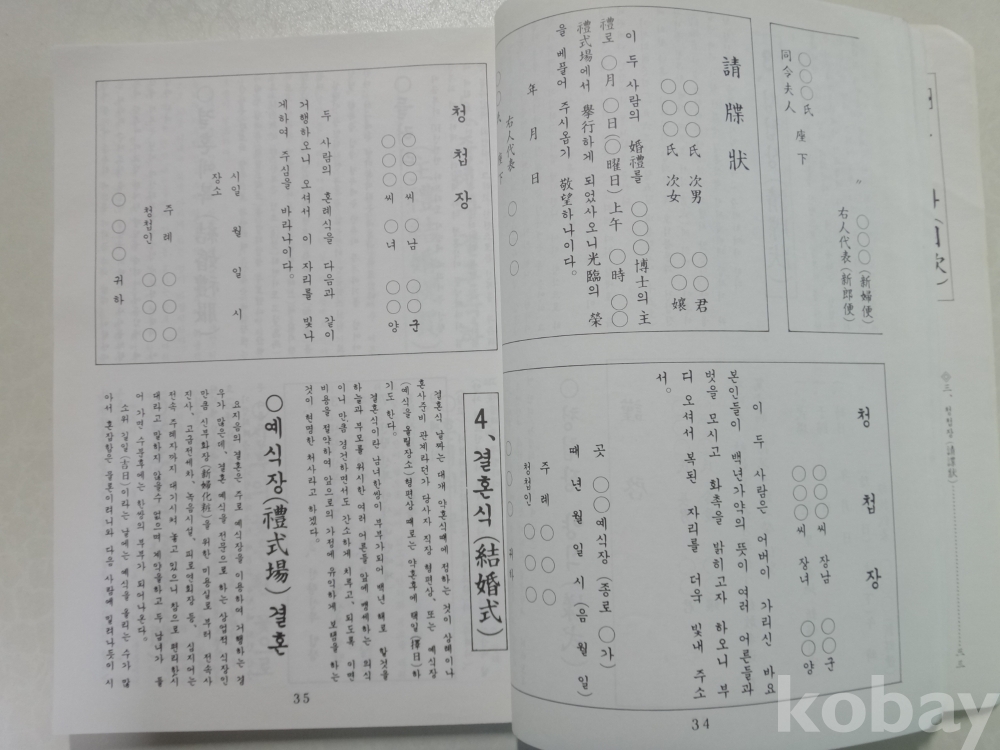 〃 ○○○(新婦便)
右人代表(新郞便)
○○○氏 座下
同令夫人
請牒狀
○○○氏 次男 ○○君
○○○氏 次女 ○○孃
이 두 사람의 婚禮를 ○○○博士의 主
禮로 ○月 ○日(○曜日)上午 ○時 ○○
禮式場에서 擧行하게 되었사오니光臨의 榮
을 베풀어 주시옵기 敬望하나이다。
年 月 日
右人代表 ○○○
청첩장
○○○씨 장남 ○○군
○○○씨 장녀 ○○양
이 두 사람은 어버이 가리신 바요
본인들이 백년가약의 뜻이 여러 어른들과
벗을 모시고 화촉을 밝히고자 하오니 부
디 오셔서 복된 자리를 더욱 빛내 주소
서。
곳 ○○예식장 (종로 ○가)
때 년 월 일 시 (음 월 일)
주 례 ○○○
청첩인 ○○○
34
청첩장
○○○씨 ○남 ○○군
○○○씨 ○녀 ○○양
두 사람의 혼례식을 다음과 같이
거행하오니 오셔서 이 자리를 빛나
게하여 주심을 바라나이다。
시일 월 일 시
장소
주 례 ○○○
청첩인 ○○○
○○○ 귀하
4、결혼식(結婚式)
결혼식 날짜는 대개 약혼식때에 정하는 것이 상례이나
혼사준비 관계라던가 당사자 직장 형편상、또는 예식장
(예식을 올릴장소)형편상 때로는 약혼후에 택일(擇日)하
기도 한다。
결혼식이란 남녀한쌍이 부부가되어 백년 해로 할것을
하늘과 부모를 위시한 여러 어른들 앞에 맹세하는 의식
이니 만큼 경건하면서도 간소하게 치루고、되도록 이면
비용을 절약하여 앞으로의 가정에 유익하게 보탬을 하는
것이 현명한 처사라고 하겠다。
○예식장(禮式場) 결혼
요지음의 결혼은 주로 예식장을 이용하여 거행하는 경
우가 많은데、결혼 예식을 전문으로 하는 상업적 식장인
만큼 신부화장(新婦化粧)을 위한 미용실로 부터 전속사
진사、고급전세차、녹음시설、피로연회장 등、심지어는
전속 주례자까지 대기시켜 놓고 있으니 참으로 편리한시
대라고 말하지않을수 없으며 계약을하고 두 남녀가 들
어가면、수분후에는 한쌍의 부부가 되어나온다。
소위 길일(吉日)이라는 날에는 예식을 올리는 수가 많
아서 혼잡함은 물론이려니와 다음 사람에 밀려나듯이 시
35
kobay